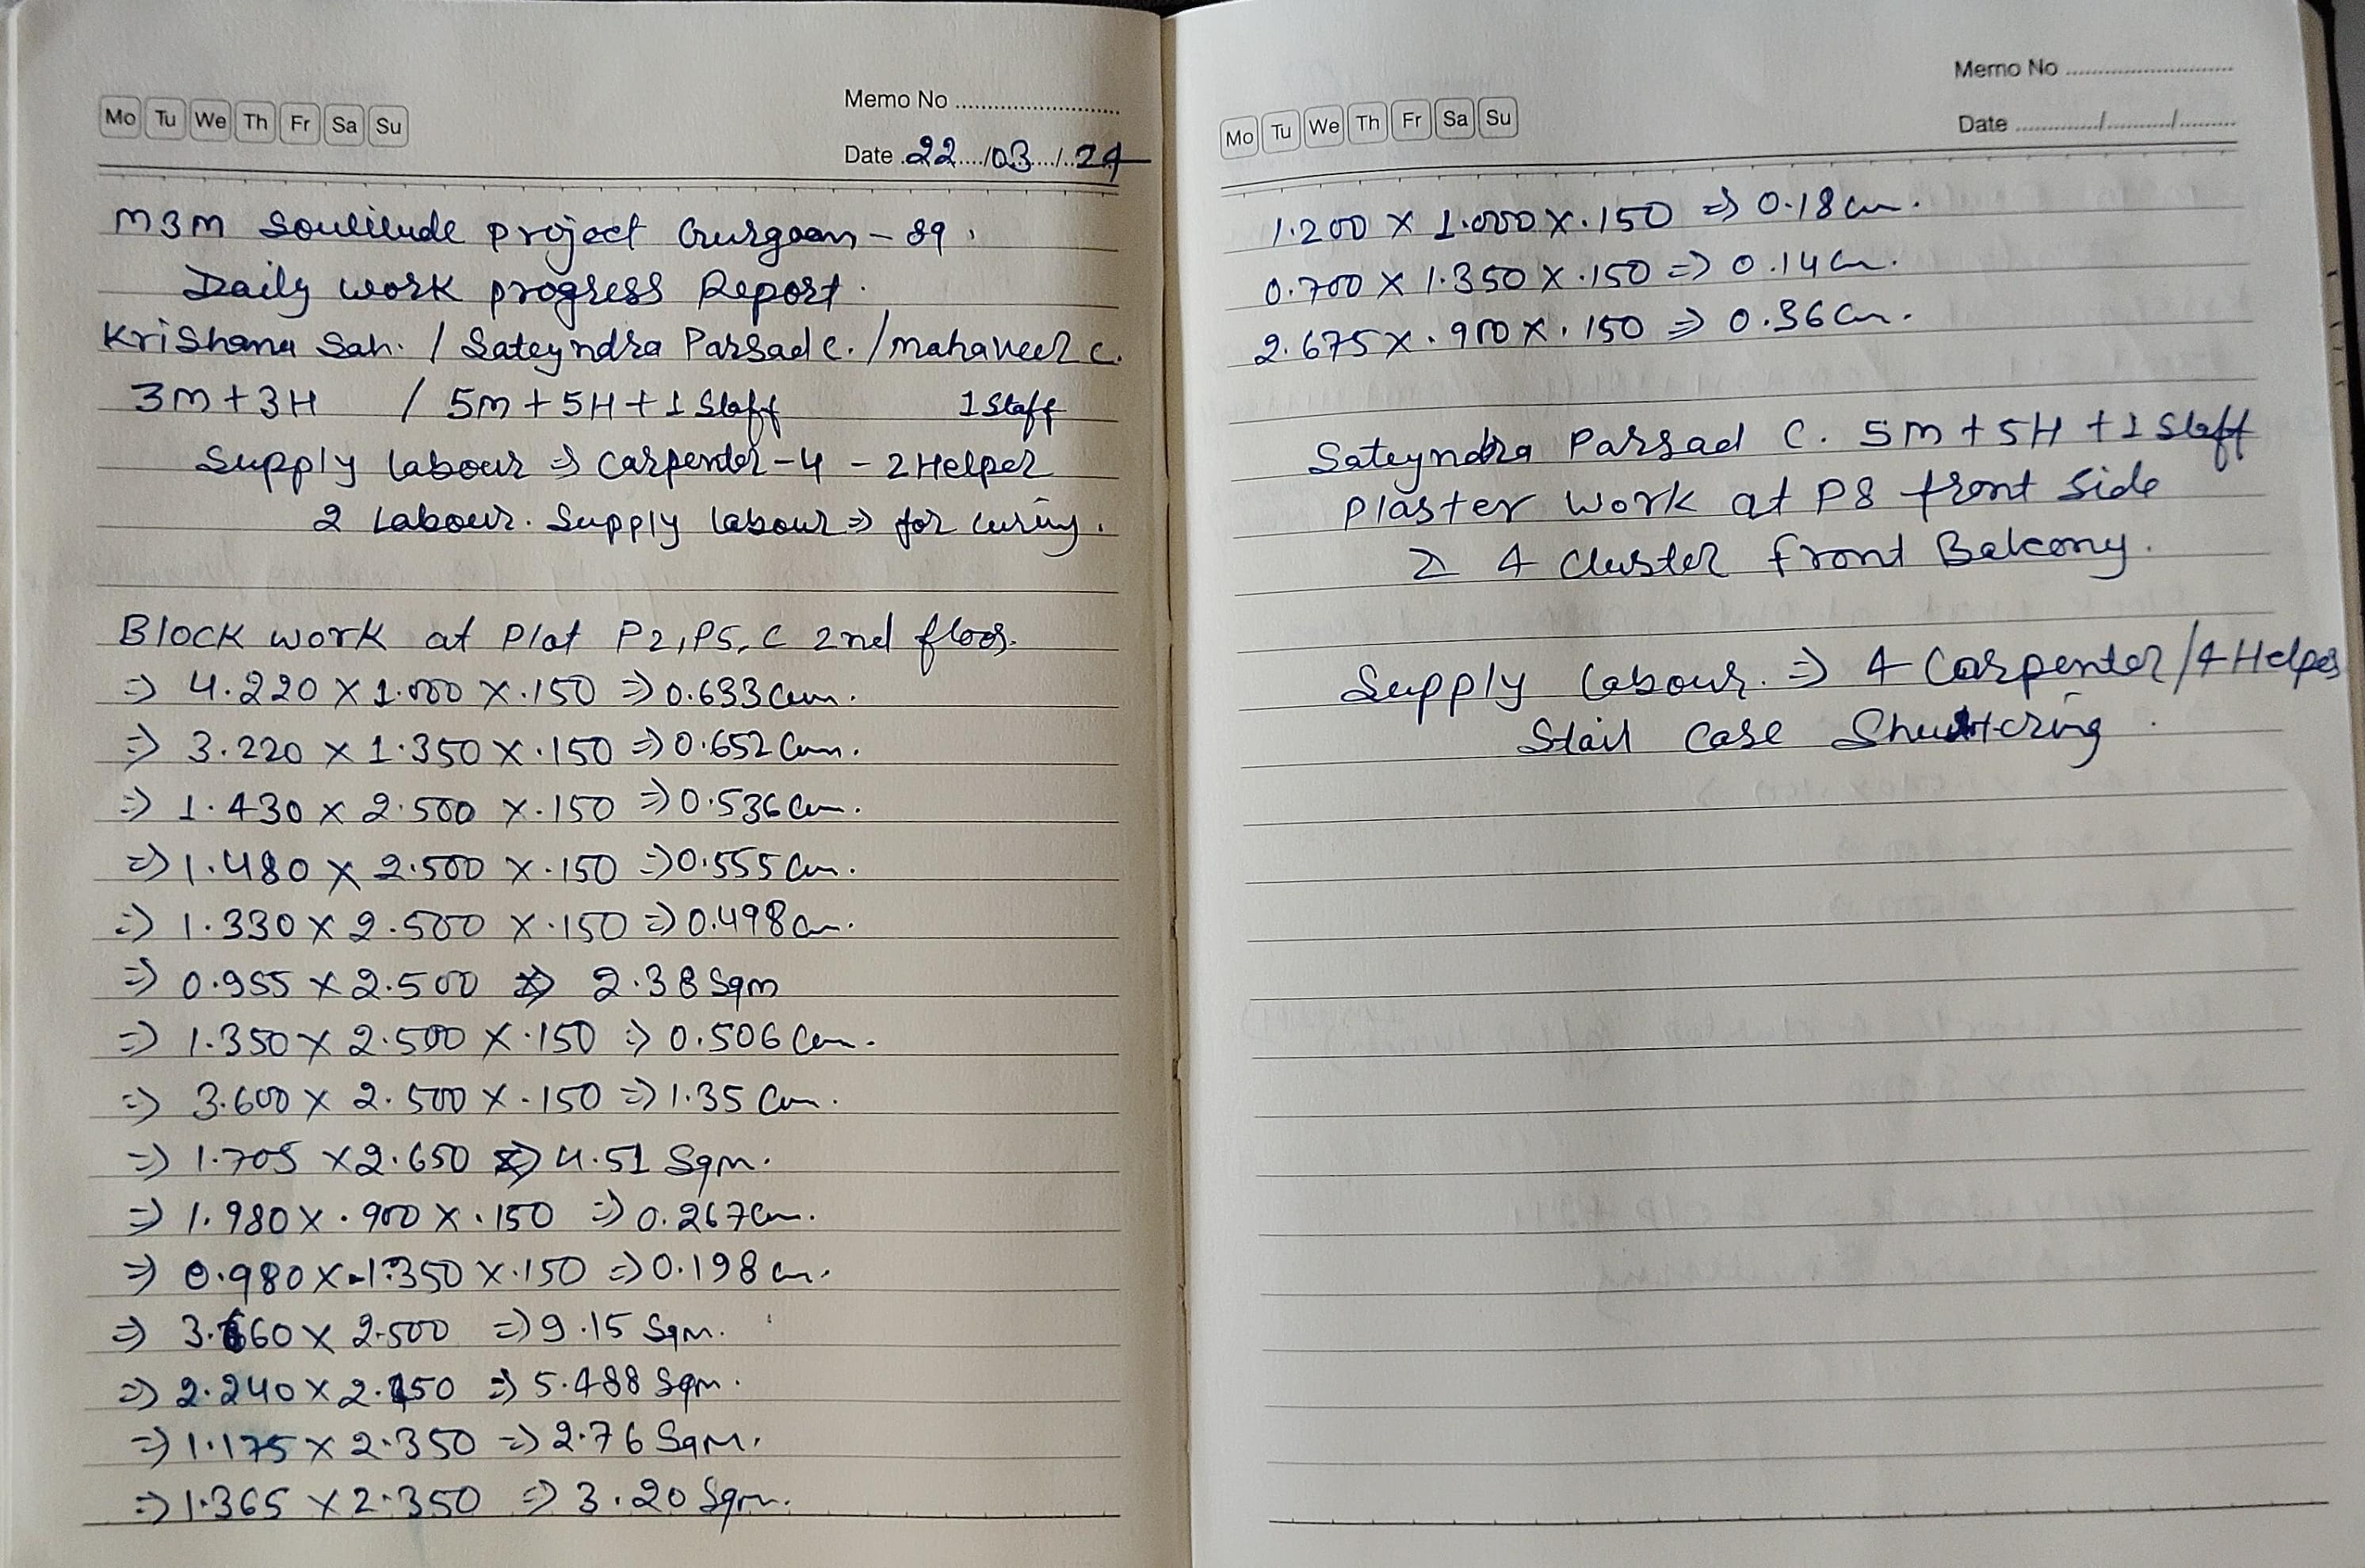 Mo Tu We Th Fr Sa Su
Memo No
Date 22/03/24
M3M Soulitude project Gurgaon - 89.
Daily work progress Report.
Krishana Sah. / Sateyndra Parsad C. / mahaveer C.
3m + 3H / 5m + 5H + 1 Staff 1 Staff
Supply labour => Carpender - 4 - 2 Helper
2 Labour. Supply labour => for curing.
Block work at Plot P2, P5, C 2nd floor.
=> 4.220 X 1.000 X .150 => 0.633 Cum.
=> 3.220 X 1.350 X .150 => 0.652 Cum.
=> 1.430 X 2.500 X .150 => 0.536 Cum.
=> 1.480 X 2.500 X .150 => 0.555 Cum.
=> 1.330 X 2.500 X .150 => 0.498 Cum.
=> 0.955 X 2.500 => 2.38 Sqm
=> 1.350 X 2.500 X .150 => 0.506 Cum.
=> 3.600 X 2.500 X .150 => 1.35 Cum.
=> 1.705 X 2.650 => 4.51 Sqm.
=> 1.980 X .900 X .150 => 0.267 Cum.
=> 0.980 X 1.350 X .150 => 0.198 Cum.
=> 3.660 X 2.500 => 9.15 Sqm.
=> 2.240 X 2.450 => 5.488 Sqm.
=> 1.175 X 2.350 => 2.76 Sqm.
=> 1.365 X 2.350 => 3.20 Sqm.
Mo Tu We Th Fr Sa Su
Memo No
Date
1.200 X 1.000 X .150 => 0.18 Cum.
0.700 X 1.350 X .150 => 0.14 Cum.
2.675 X .900 X .150 => 0.36 Cum.
Sateyndra Parsad C. 5m + 5H + 1 Staff
Plaster work at P8 front side
2 4 Cluster front Balcony.
Supply labour. => 4 Carpenter / 4 Helper
Stair Case Shuttering.